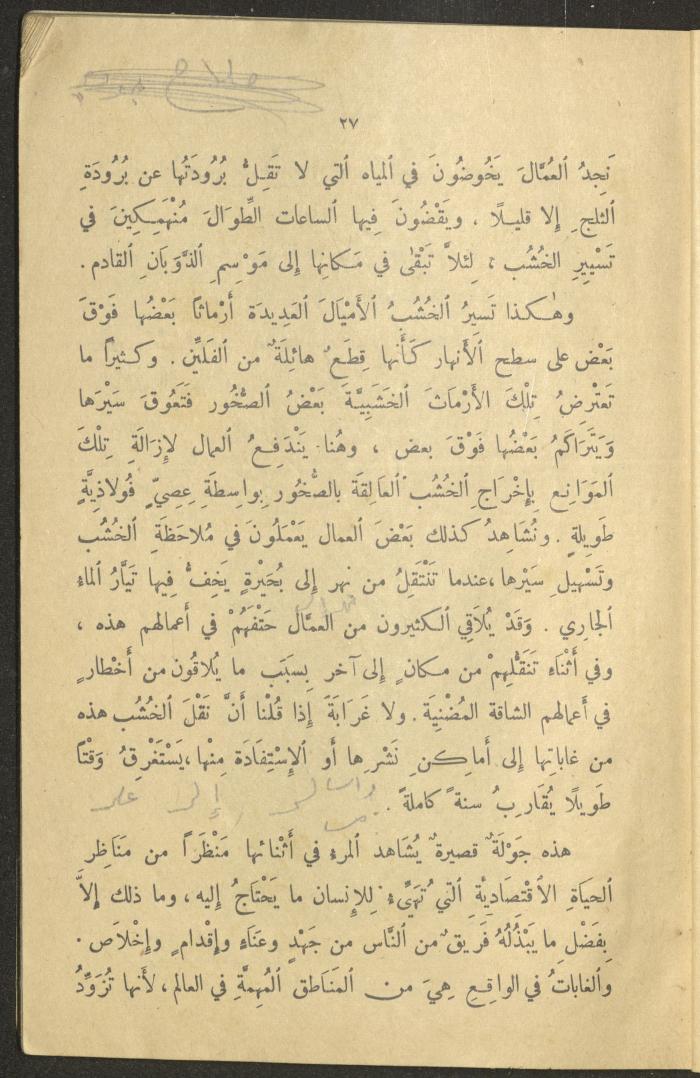 ٢٧
نَجِدُ ٱلعُمَّالَ يَخُوضُونَ في ٱلمياه ٱلتي لا تَقِلُّ بُرُودَتُها عن بُرُودَةِ
ٱلثلجِ إلا قليلًا ، ويَقْضُونَ فِيها ٱلساعات ٱلطِّوَالَ مُنْهَمِكِينَ في
تَسْيِيرِ ٱلخُشُب ، لِئلاَّ تَبْقَى في مَكانِها إلى مَوْسِمِ ٱلذَّوَبَانِ ٱلقادم .
وهٰكذا تَسيرُ ٱلخُشُبُ ٱلأَمْيَالَ ٱلعَدِيدَةَ أَرْماثًا بَعْضُها فَوْقَ
بَعْض على سطح ٱلأَنهار كَأَنها قِطَعٌ هائِلَةٌ من ٱلفَلِّينِ . وكثيرًا ما
تَعْتَرِضُ تِلْكَ الأَرْمَاثَ ٱلخَشَبِيَّةَ بَعْضُ ٱلصُّخُور فَتَعُوقَ سَيْرَها
وَيَتَرَاكَمُ بَعْضُها فَوْقَ بعض ، وهُنا يَنْدَفِعُ ٱلعمال لإِزَالَةِ تِلْكَ
ٱلمَوَانِعِ بِإِخْرَاجِ ٱلخُشُب ٱلعَالِقَةَ بالصُّخُور بِواسِطَةِ عِصِيٍّ فُولاذِيَّةٍ
طَوِيلةٍ . ونُشَاهِدُ كذلك بَعْضَ ٱلعمال يَعْمَلُونَ في مُلاحَظَةِ ٱلخُشُب
وتَسْهِيلِ سَيْرِها ،عندما تَنْتَقِلُ من نهر إلى بُحَيْرَةٍ يَخِفُّ فِيها تَيَّارُ ٱلماءِ
ٱلجارِي . وَقَدْ يُلَاقِي ٱلكثيرون من ٱلعمَّال حَتْفَهُمْ في أَعمالهم هذه ،
وفي أَثْنَاءِ تَنَقُّلِهِمْ من مكانٍ إلى آخر بِسبَبَ ما يُلاقُون من أَخْطارٍ
في أَعمالهم الشاقة ٱلمُضْنِيَة . ولا غَرَابَةَ إذا قُلْنا أَنَّ نَقْلَ ٱلخُشُب هذه
من غاباتِها إلى أَماكِنِ نَشْرِها أَو ٱلإِسْتِفَادَة مِنْها ،يَسْتَغْرِقُ وَقْتًا
طَوِيلًا يُقَارِبُ سنةً كاملةً .
هذه جَوْلَةٌ قصيرةٌ يُشَاهد ٱلمرءُ في أَثْنائها مَنْظَرًا من مَنَاظِرِ
ٱلحَيَاةِ ٱلاقْتصَاديةِ ٱلتي تُهيِّءُ لِلإِنسان ما يَحْتَاجُ إليه ، وما ذلك إلاَّ
بِفَضْلِ ما يَبْذُلُهُ فَرِيقٌ من ٱلنَّاس من جَهْدٍ وعَنَاءٍ وإِقْدامٍ وإِخْلَاص .
وٱلغاباتُ في ٱلواقِعِ هِيَ من ٱلمَنَاطق ٱلمُهِمَّةِ في العالم ، لأَنها تُزَوِّدُ